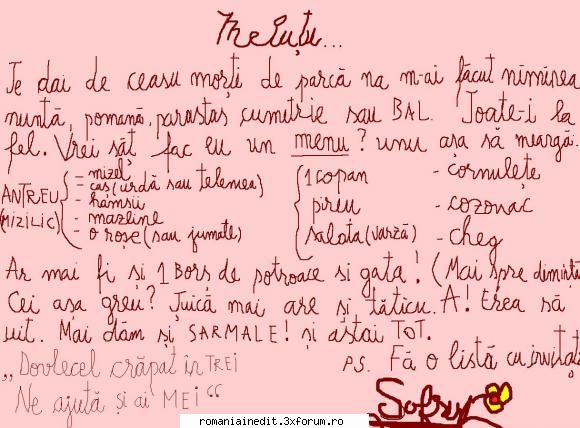 Meluțu...
Te dai de ceasu morți de parcă na m-ai făcut nimirea
nuntă, pomană, parastas cumitrie sau BAL. Toate-i la
fel. Vrei săț fac eu un menu? unu așa să meargă.
ANTREU (MIZILIC)
- mizel
- caș (urdă sau telemea)
- hamsii
- mazline
- o roșe (sau jumate)
1 copan
pireu
salata (varză)
- cornulețe
- cozonac
- cheg
Ar mai fi și 1 Borș de potroace si gata! (Mai spre dimineț
Cei așa greu? Țuică mai are și tăticu. A! Erea să
uit. Mai dăm și SARMALE! și aștai TOT.
„Dovlecel crăpat în TREI
Ne ajută și ai MEI“
P.S. Fă o listă cu invitați
Sofry
www.romaniainedit.3xforum.ro